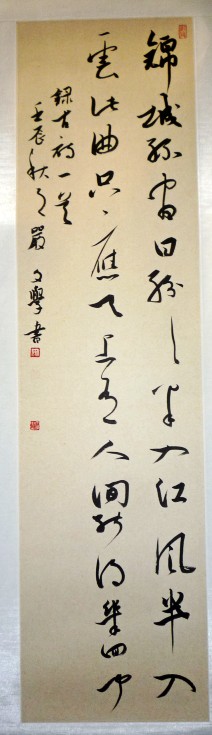 錦城絲管日紛々半入江風半入
雲此曲只應天上有人間能得幾回聞
錄古詩一首
壬辰秋月嚴文學書